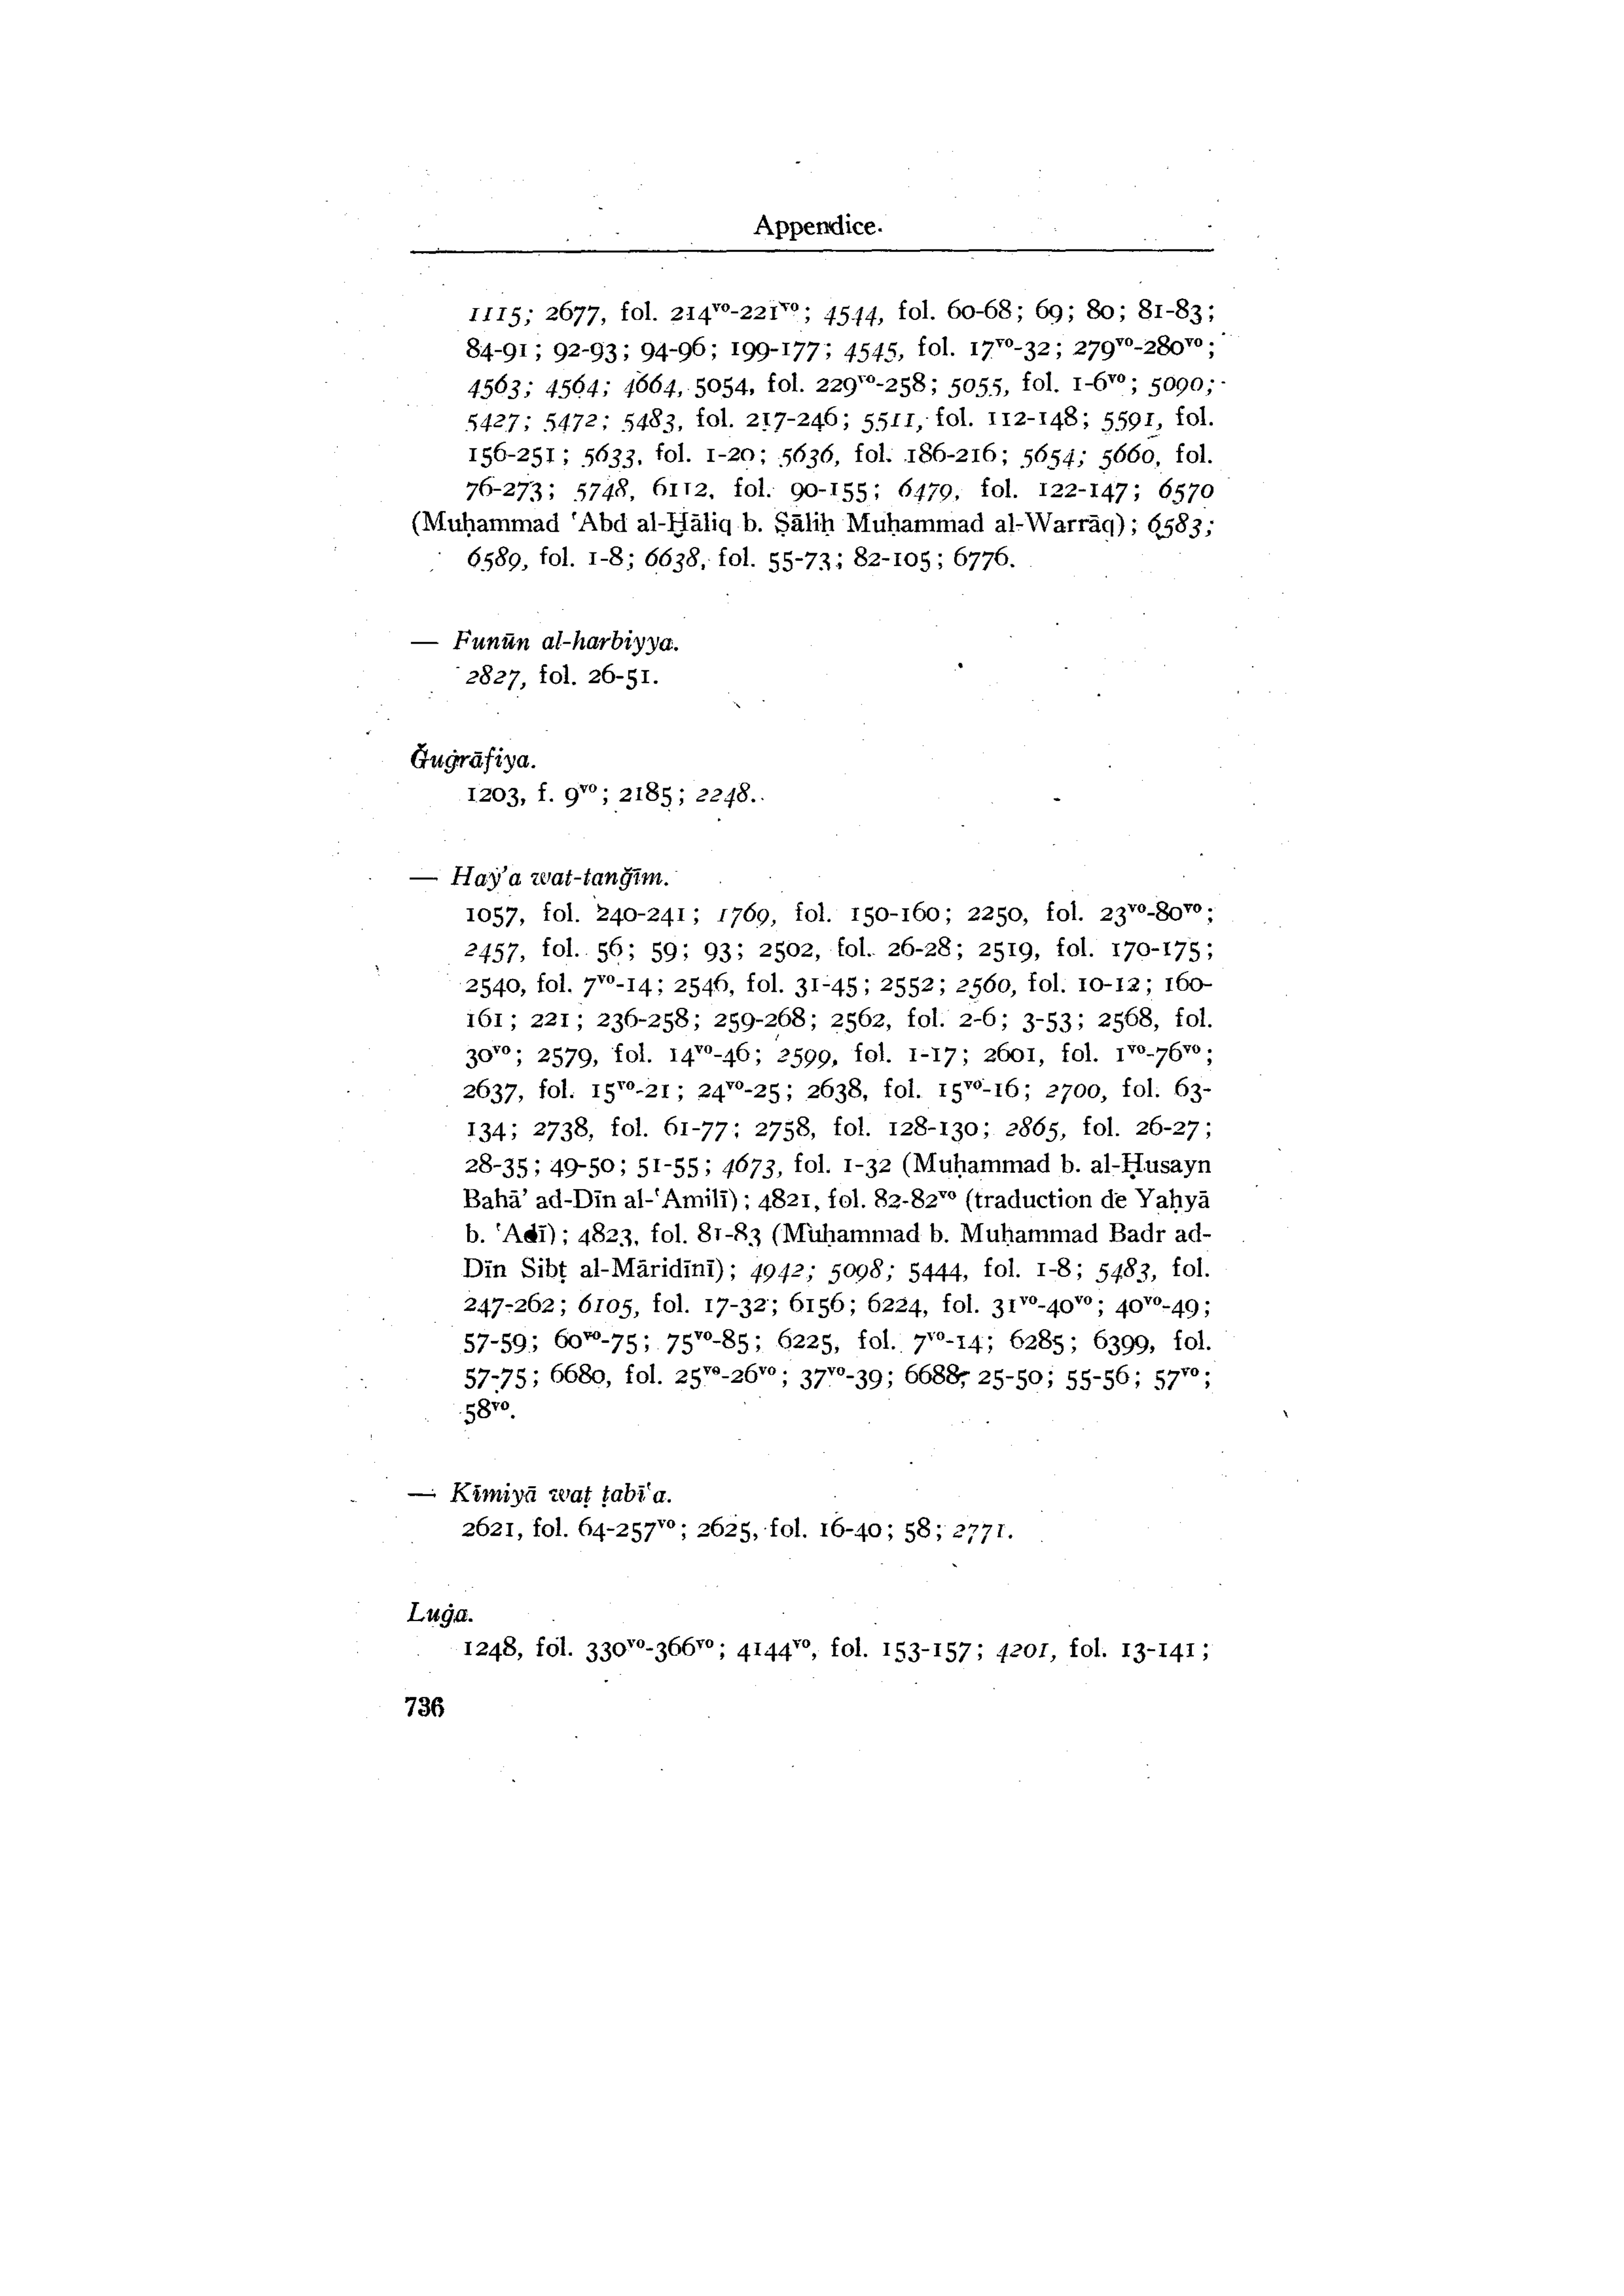 Appendice.
1115; 2677, fol. 214vo-221vo; 4544, fol. 60-68; 69; 80; 81-83;
84-91; 92-93; 94-96; 199-177; 4545, fol. 17vo-32; 279vo-280vo;
4563; 4564; 4664, 5054, fol. 229vo-258; 5055, fol. 1-6vo; 5090;
5427; 5472; 5483, fol. 217-246; 5511, fol. 112-148; 5591, fol.
156-251; 5633, fol. 1-20; 5636, fol. 186-216; 5654; 5660, fol.
76-273; 5748, 6112, fol. 90-155; 6479, fol. 122-147; 6570
(Muḥammad ʿAbd al-Ḫāliq b. Ṣāliḥ Muḥammad al-Warrāq); 6583;
6589, fol. 1-8; 6638, fol. 55-73; 82-105; 6776.
— Funūn al-harbiyya.
2827, fol. 26-51.
Ǧuġrāfiya.
1203, f. 9vo; 2185; 2248.
— Hay'a wat-tanǧīm.
1057, fol. 240-241; 1769, fol. 150-160; 2250, fol. 23vo-80vo;
2457, fol. 56; 59; 93; 2502, fol. 26-28; 2519, fol. 170-175;
2540, fol. 7vo-14; 2546, fol. 31-45; 2552; 2560, fol. 10-12; 160-
161; 221; 236-258; 259-268; 2562, fol. 2-6; 3-53; 2568, fol.
30vo; 2579, fol. 14vo-46; 2599, fol. 1-17; 2601, fol. 1vo-76vo;
2637, fol. 15vo-21; 24vo-25; 2638, fol. 15vo-16; 2700, fol. 63-
134; 2738, fol. 61-77; 2758, fol. 128-130; 2865, fol. 26-27;
28-35; 49-50; 51-55; 4673, fol. 1-32 (Muḥammad b. al-Ḥusayn
Bahā' ad-Dīn al-ʿAmilī); 4821, fol. 82-82vo (traduction de Yaḥyā
b. ʿAdī); 4823, fol. 81-83 (Muḥammad b. Muḥammad Badr ad-
Dīn Sibṭ al-Māridīnī); 4942; 5098; 5444, fol. 1-8; 5483, fol.
247-262; 6105, fol. 17-32; 6156; 6224, fol. 31vo-40vo; 40vo-49;
57-59; 60vo-75; 75vo-85; 6225, fol. 7vo-14; 6285; 6399, fol.
57-75; 6680, fol. 25vo-26vo; 37vo-39; 6688, 25-50; 55-56; 57vo;
58vo.
— Kīmiyā waṭ ṭabīʿa.
2621, fol. 64-257vo; 2625, fol. 16-40; 58; 2771.
Luġa.
1248, fol. 330vo-366vo; 4144vo, fol. 153-157; 4201, fol. 13-141;
736